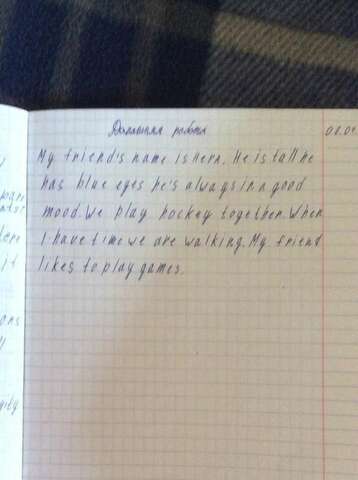 Домашняя работа
08.09
My friend's name is Hern. He is tall he
has blue eyes he's always in a good
mood. We play hockey together. When
I have time we are walking. My friend
likes to play games.